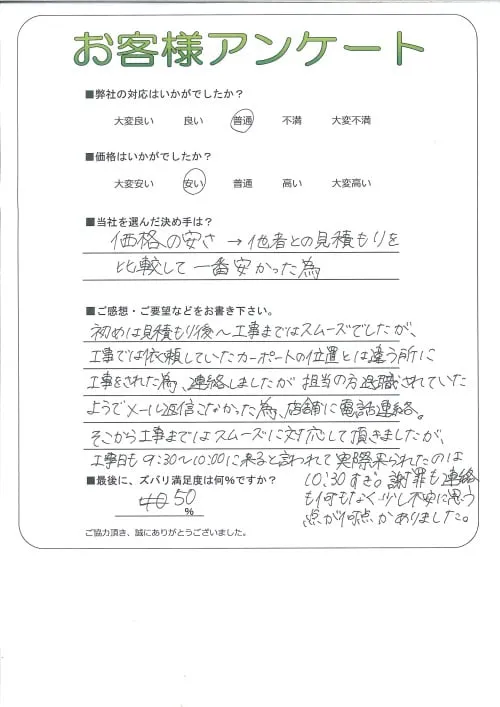 お客様アンケート
■弊社の対応はいかがでしたか？
大変良い 良い 普通 不満 大変不満
■価格はいかがでしたか？
大変安い 安い 普通 高い 大変高い
■当社を選んだ決め手は？
価格の安さ → 他者との見積もりを
比較して一番安かった為
■ご感想・ご要望などをお書き下さい。
初めは見積もり後～工事まではスムーズでしたが、
工事では依頼していたカーポートの位置とは違う所に
工事をされた為、連絡しましたが 担当の方退職されていた
ようでメール返信こなかった為、店舗に電話連絡。
そこから工事まではスムーズに対応して頂きましたが、
工事日も9:30～10:00に来ると言われて実際来られたのは
10:30すぎ。謝罪も連絡
も何もなく少し不安に思う
点が何点かありました。
■最後に、ズバリ満足度は何％ですか？
40 50
％
ご協力頂き、誠にありがとうございました。